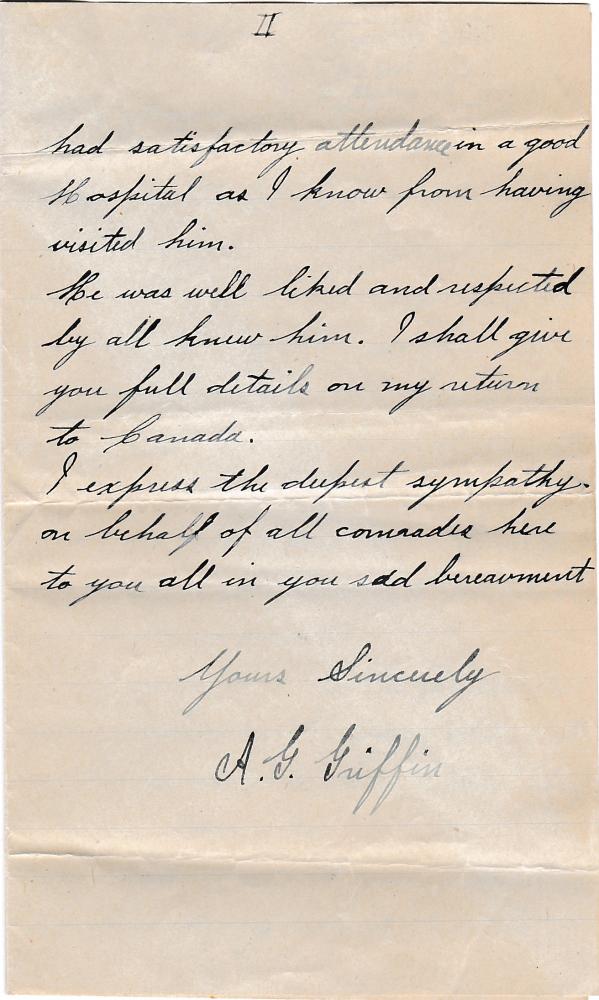 II
had satisfactory attendance in a good
Hospital as I know from having
visited him.
He was well liked and respected
by all knew him. I shall give
you full details on my return
to Canada.
I express the deepest sympathy.
on behalf of all comrades here
to you all in you sad bereavment
Yours Sincerely
A. G. Griffin